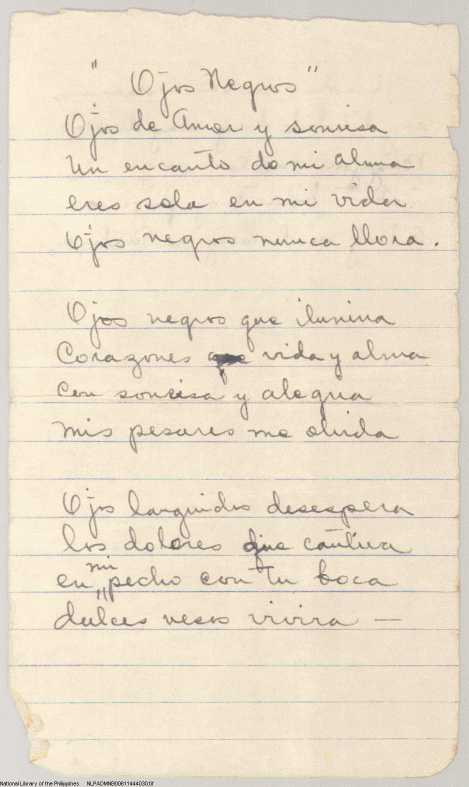 "Ojos Negros"
Ojos de Amor y sonrisa
Un encanto do mi alma
eres sola en mi vida
Ojos negros nunca llora.
Ojos negros que ilumina
Corazones vida y alma
Con sonrisa y alegria
Mis pesares me olvida
Ojos languidos desespera
los dolores que cautiva
en mi pecho con tu boca
dulces vesos vivira —
National Library of the Philippines